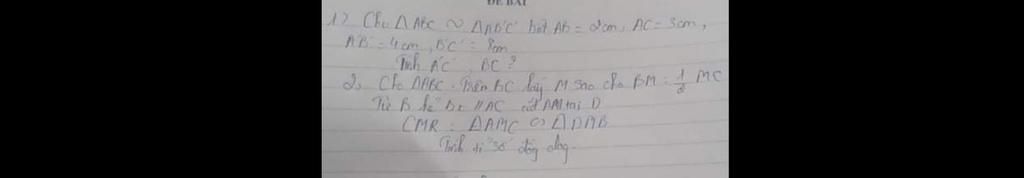 ĐỀ BÀI
1) Cho Δ ABC ∽ ΔA'B'C' biết AB = 2cm, AC = 3cm,
A'B' = 4cm, B'C' = 8cm
Tính A'C', BC ?
2, Cho ΔABC. Trên BC lấy M sao cho BM = 1/2 MC
Từ B kẻ Bx // AC cắt AM tại D
CMR : ΔAMC ∽ ΔDMB
Tính tỉ số đồng dạng.